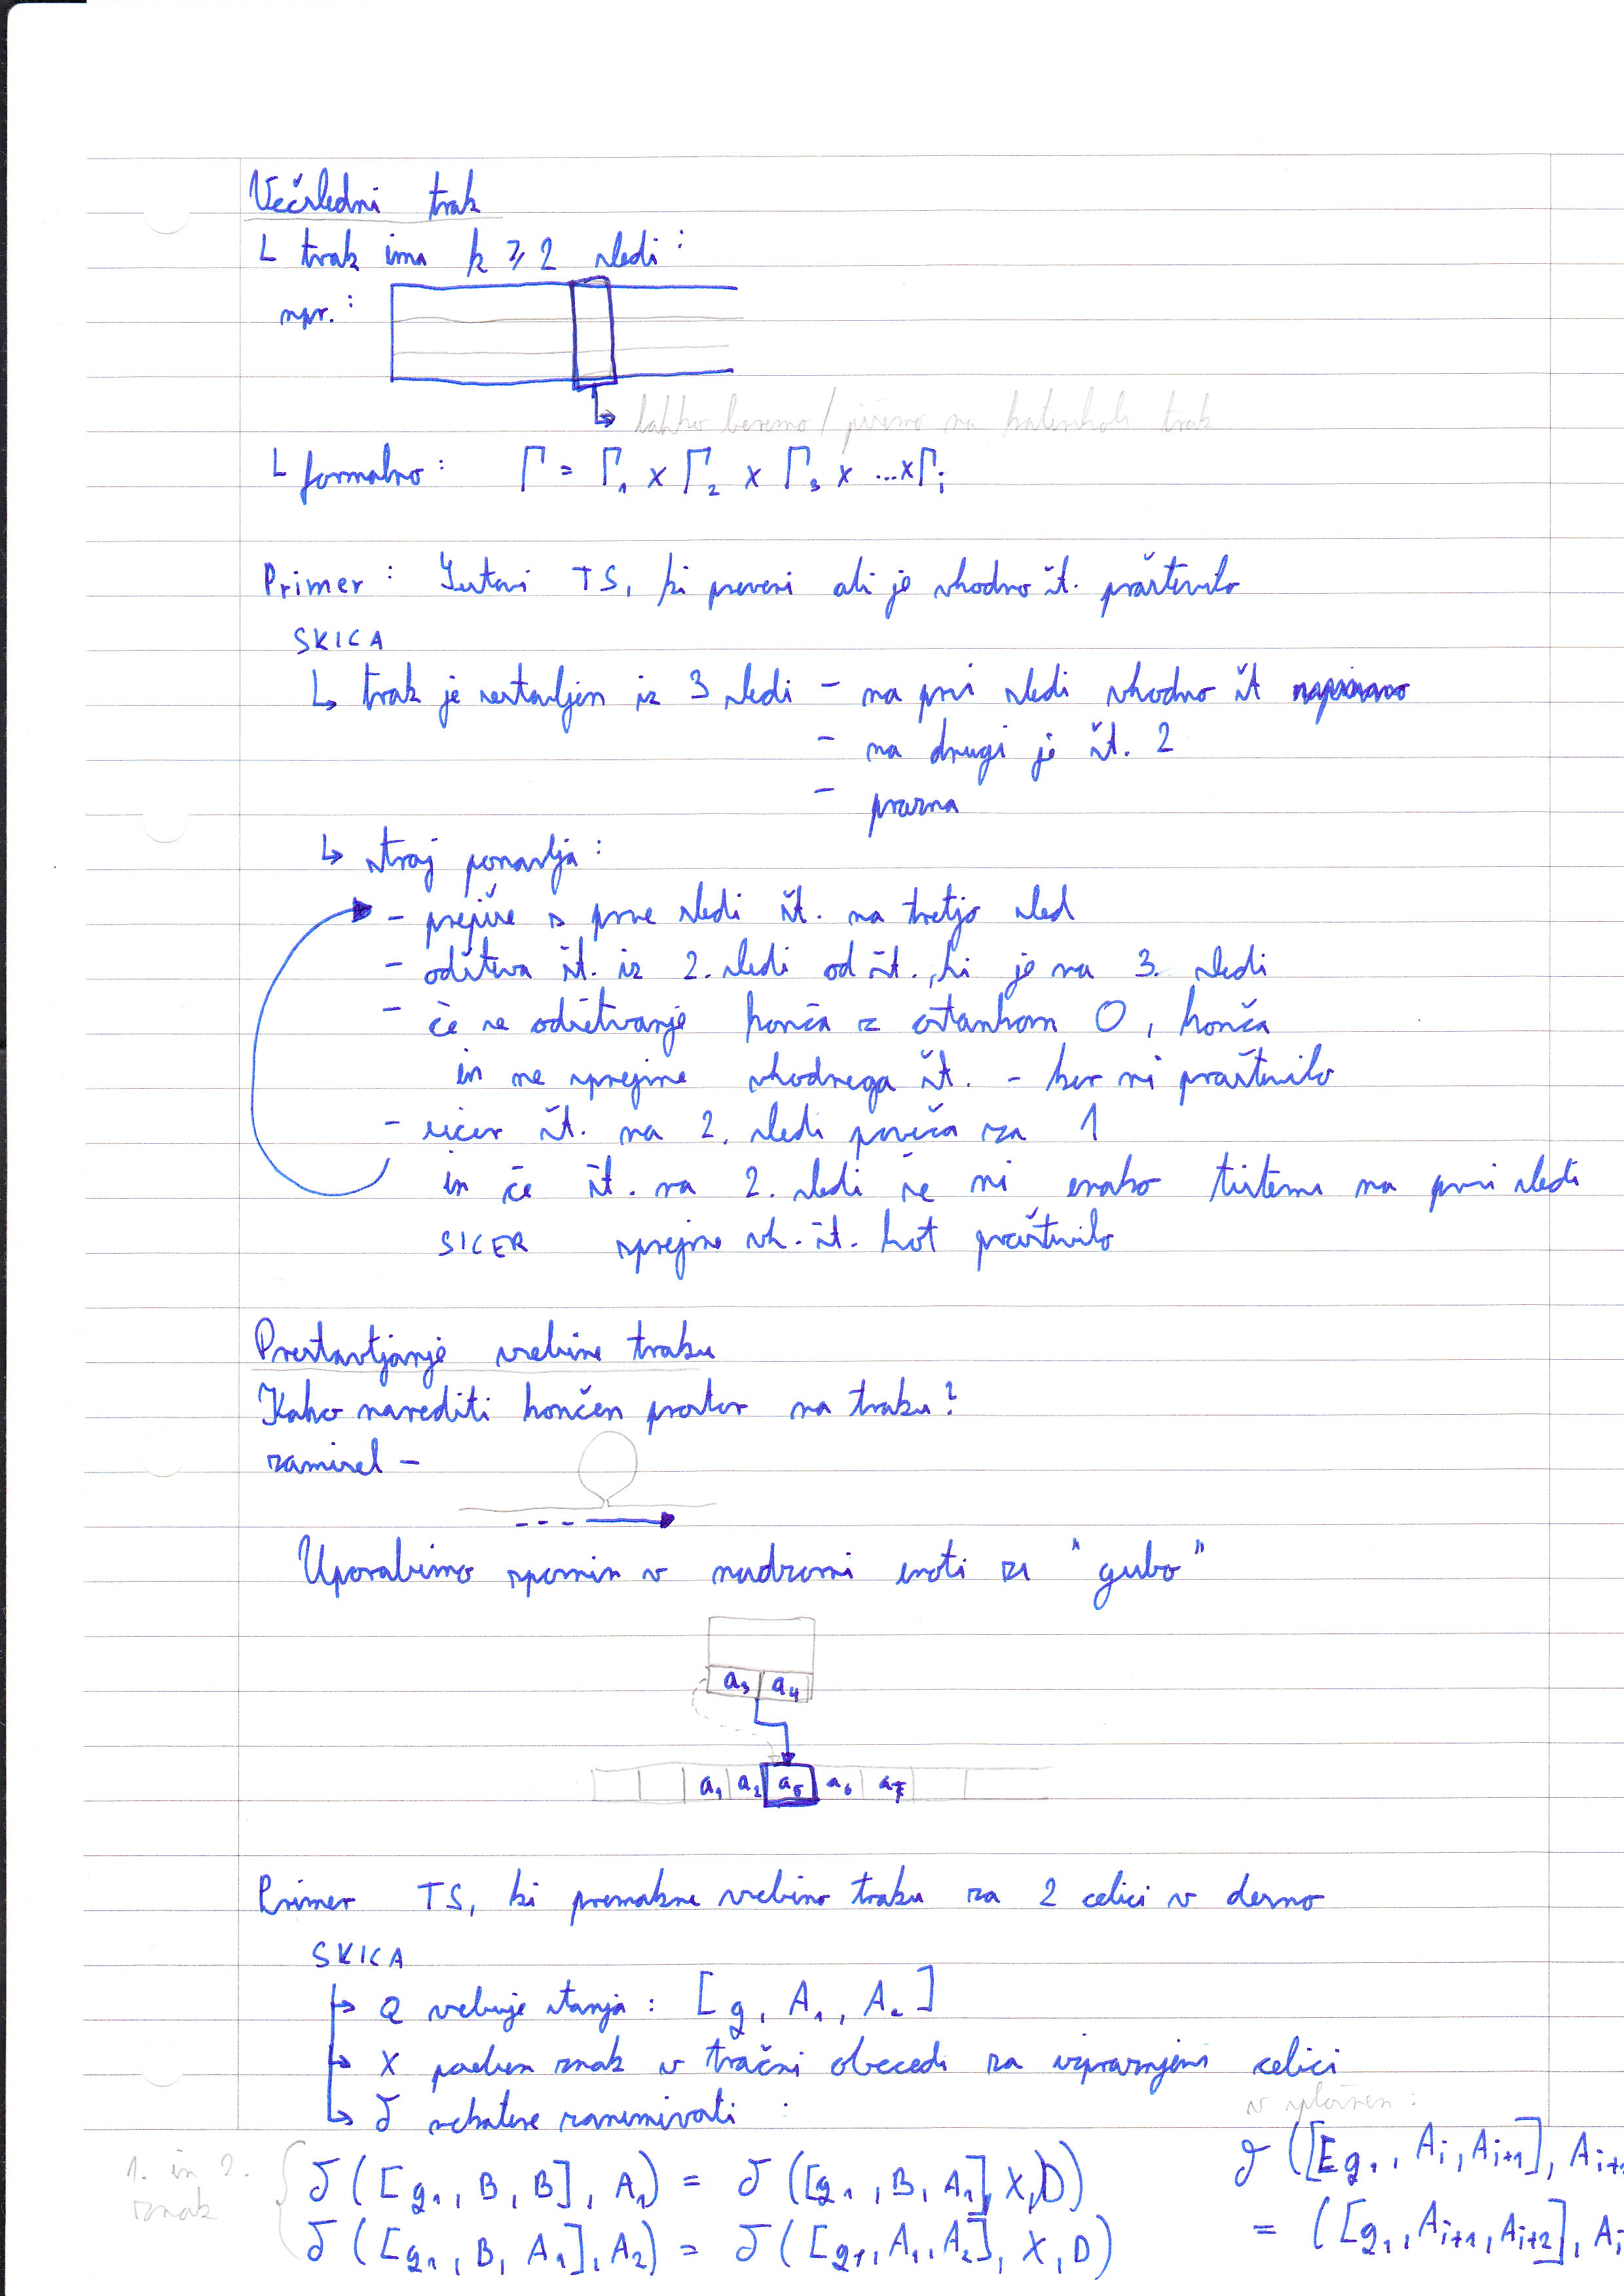 Večsledni trak
↳ trak ima k ≥ 2 sledi :
npr. :
↳ lahko beremo / pišemo na katerikoli trak
↳ formalno : Γ = Γ₁ × Γ₂ × Γ₃ × ... × Γᵢ
Primer : Sestavi TS, ki preveri ali je vhodno št. praštevilo
SKICA
↳ trak je sestavljen iz 3 sledi – na prvi sledi vhodno št napisano
– na drugi je št. 2
– prazna
↳ stroj ponavlja :
– prepiše s prve sledi št. na tretjo sled
– odšteva št. iz 2. sledi od št., ki je na 3. sledi
– če se odštevanje konča z ostankom 0, konča
in ne sprejme vhodnega št. – ker ni praštevilo
– sicer št. na 2. sledi poveča za 1
in če št. na 2. sledi še ni enako tistemu na prvi sledi
SICER sprejme vh. št. kot praštevilo
Prestavljanje vsebine traku
Kako narediti končen prostor na traku?
zamisel –
Uporabimo spomin v nadzorni enoti za "gubo"
a₃ a₄
a₁ a₂ a₅ a₆ a₇
Primer TS, ki premakne vsebino traku za 2 celici v desno
SKICA
↳ Q vsebuje stanja : [q, A₁, A₂]
↳ X poseben znak v tračni abecedi za izpraznjeni celici
↳ δ nekatere zanimivosti :
v splošnem :
1. in 2.
znak
δ([q₁, B, B], A₁) = δ([q₁, B, A₁], X, D)
δ([q₁, B, A₁], A₂) = δ([q₁, A₁, A₂], X, D)
δ([q₁, Aᵢ, Aᵢ₊₁], Aᵢ₊
= ([q₁, Aᵢ₊₁, Aᵢ₊₂], Aᵢ